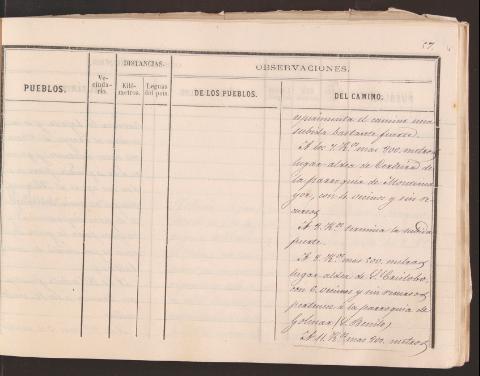 57,
PUEBLOS.
Ve-
cinda-
rio.
DISTANCIAS.
Kiló-
metros.
Leguas
del país
OBSERVACIONES.
DE LOS PUEBLOS.
DEL CAMINO.
esperimenta el camino una
subida bastante fuerte.
A los 7 K.os mas 200 metros
lugar aldea de de
la parroquia de Montema-
yor, con 4 vecinos y sin re-
cursos
A K.os termina la subida
fuerte.
A K.os mas 500 metros
lugar aldea de S. Cristobo,
con 6 vecinos y sin recursos
pertenece á la parroquia de
Golmar (S. Benito)
A 11 K.os mas 200 metros